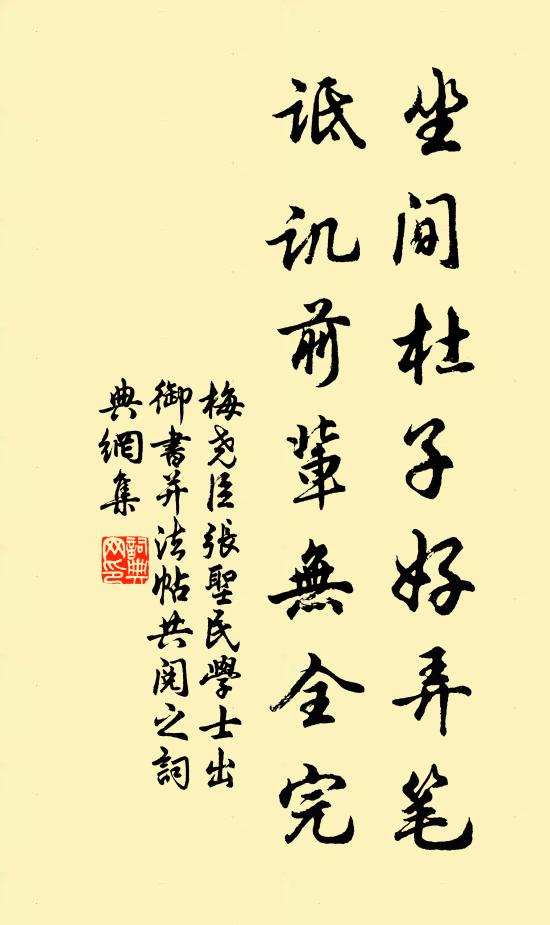 坐间杜子好弄笔
诋讥前辈無全完
梅尧臣張聖民學士出
御書并法帖共阅之詞
典網集
詞典
网印